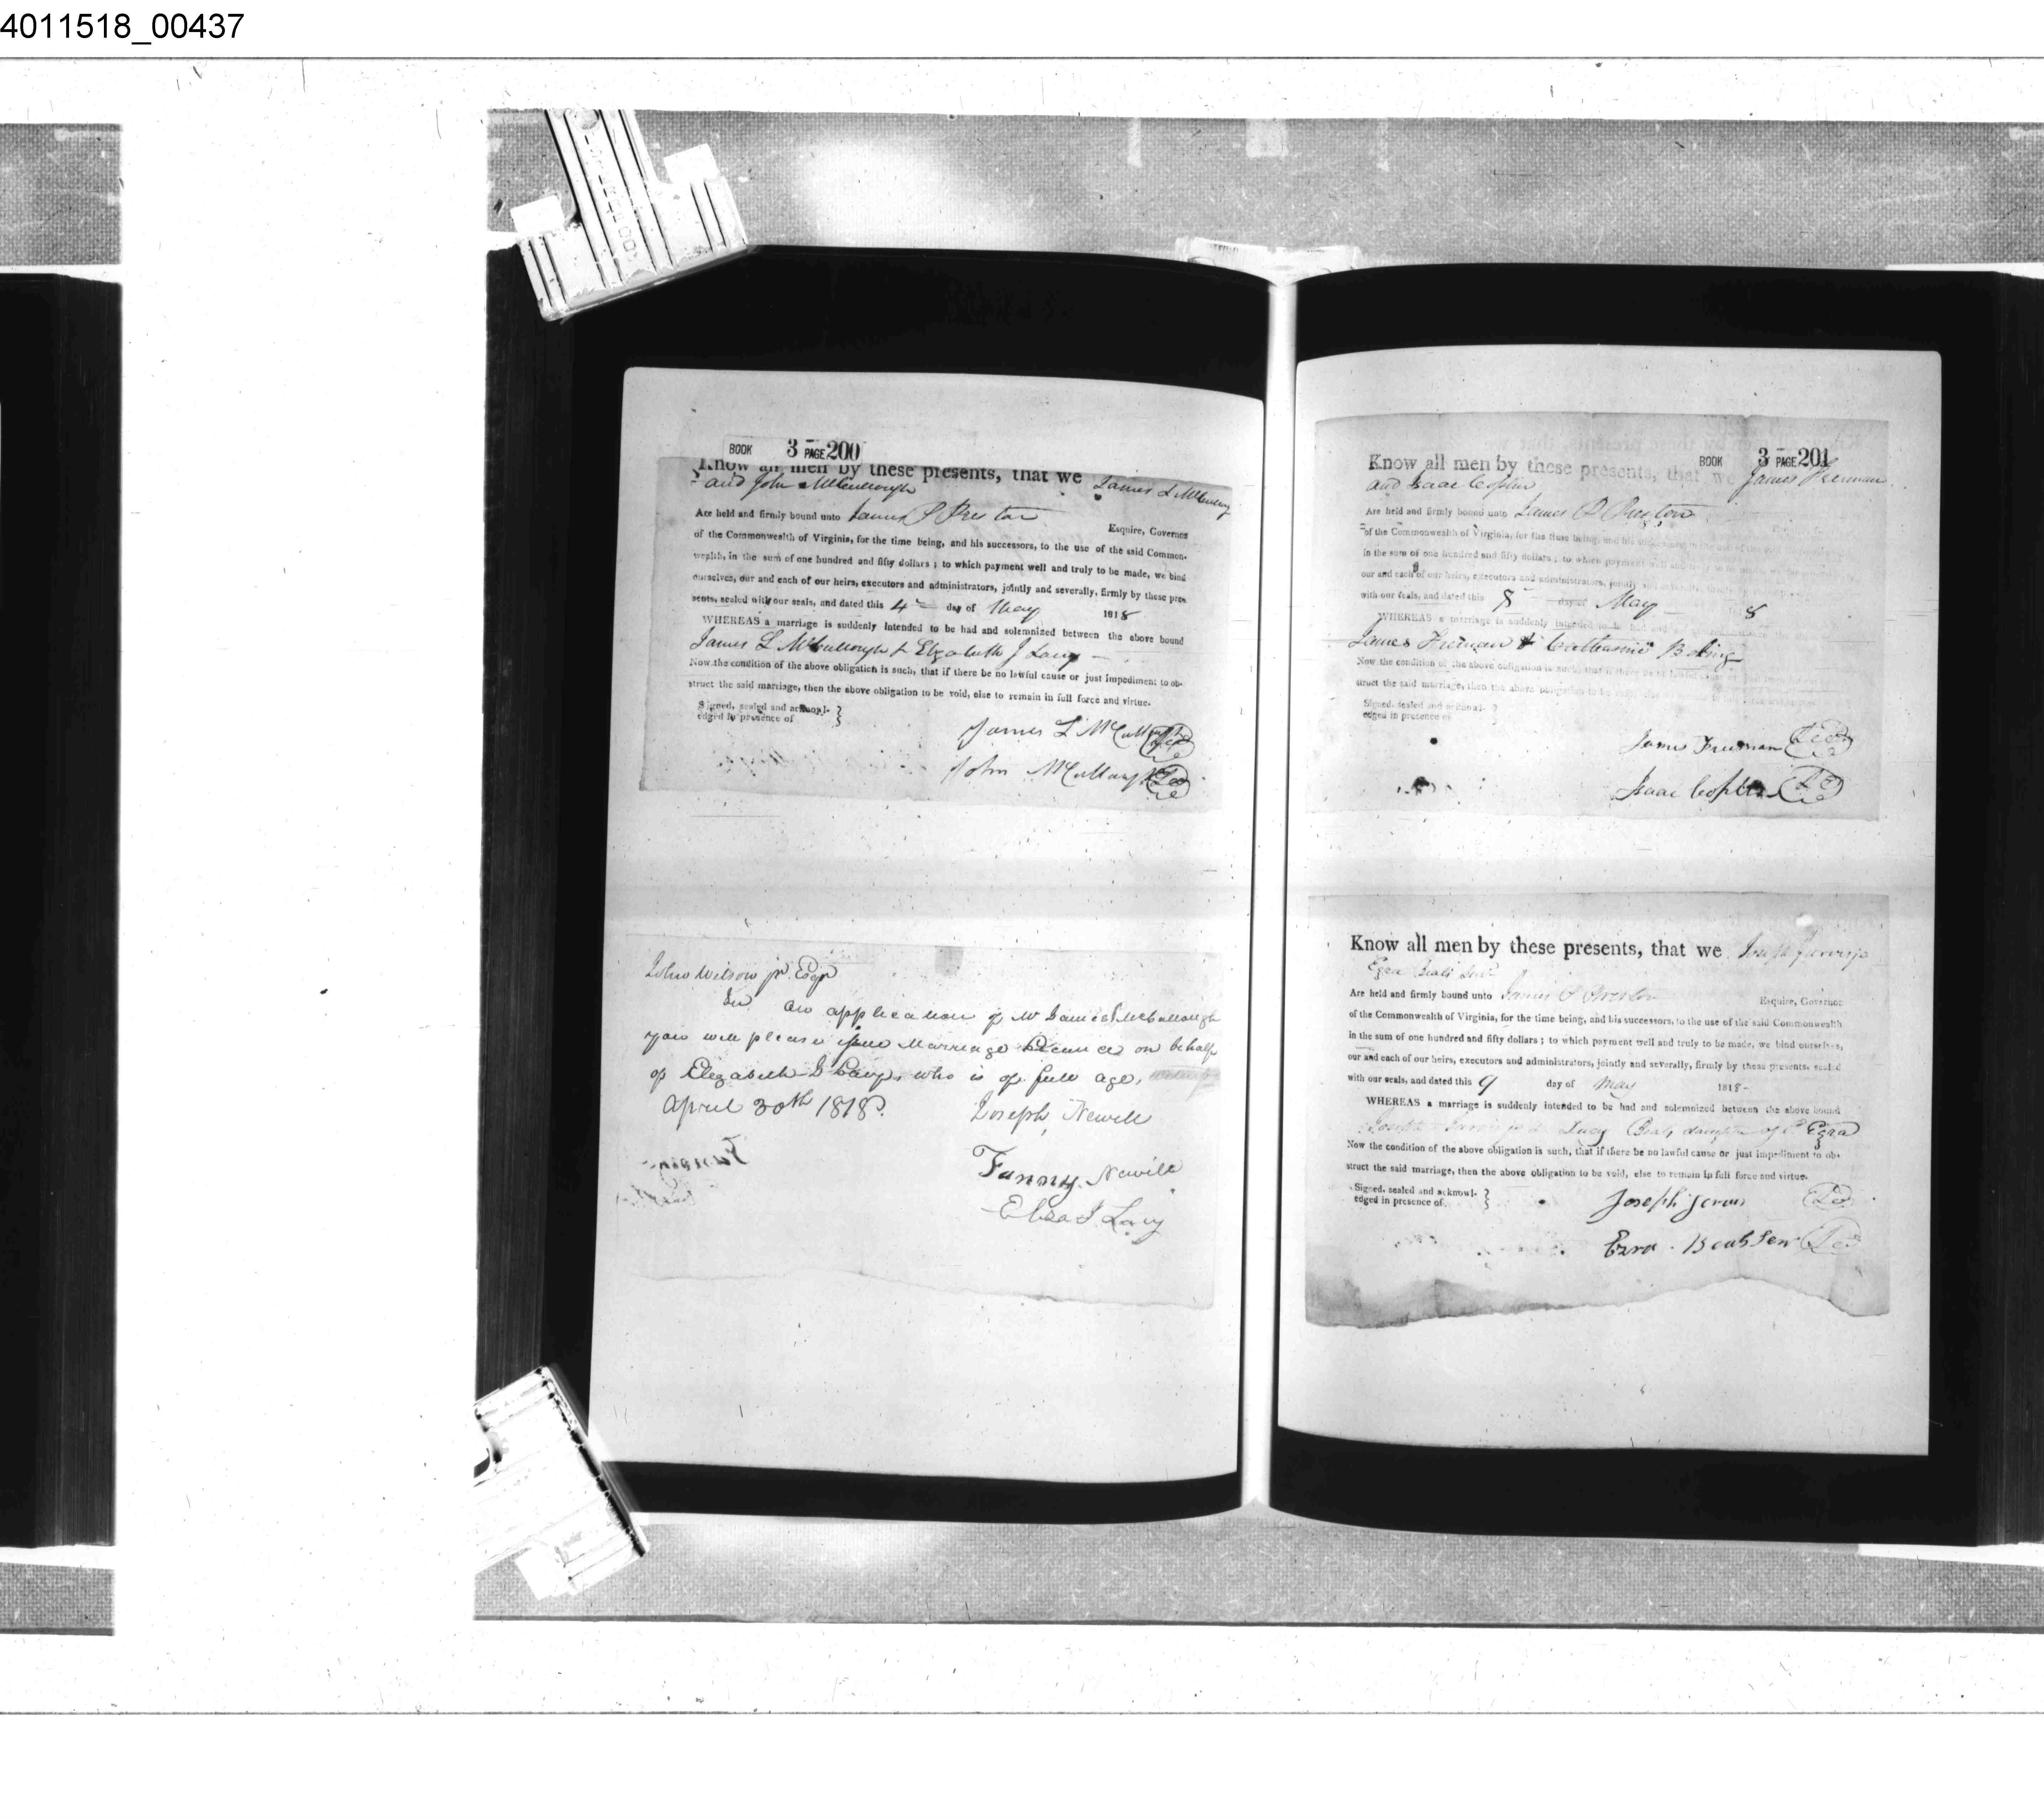 4011518_00437
BOOK 3 PAGE 200
Know all men by these presents, that we James L McCullough
and John McCullough
Are held and firmly bound unto James P Preston Esquire, Governor
of the Commonwealth of Virginia, for the time being, and his successors, to the use of the said Common-
wealth, in the sum of one hundred and fifty dollars ; to which payment well and truly to be made, we bind
ourselves, our and each of our heirs, executors and administrators, jointly and severally, firmly by these pre-
sents, sealed with our seals, and dated this 4th day of May 1818
WHEREAS a marriage is suddenly intended to be had and solemnized between the above bound
James L McCullough & Elizabeth J Lacy
Now the condition of the above obligation is such, that if there be no lawful cause or just impediment to ob-
struct the said marriage, then the above obligation to be void, else to remain in full force and virtue.
Signed, sealed and acknowl-
edged in presence of
James L McCullough
John McCullough
John Wilson jr. Esqr
Sir an application of Mr James L McCullough
you will please issue Marriage Licence on behalf
of Elizabeth J Lacy, who is of full age,
April 30th 1818.
Joseph Newell
Fanny Newill
Eliza J. Lacy
BOOK 3 PAGE 201
Know all men by these presents, that we James Freeman
and Isaac Coplin
Are held and firmly bound unto James P Preston
of the Commonwealth of Virginia, for the time being, and his successors, to the use of the
in the sum of one hundred and fifty dollars ; to which payment well and truly to be made, we
our and each of our heirs, executors and administrators, jointly
with our seals, and dated this 8 day of May 8
WHEREAS a marriage is suddenly intended to be had and
James Freeman & Catharine Boling
Now the condition of the above obligation is such, that if there be no lawful cause
struct the said marriage, then the above obligation to be void
Signed, sealed and acknowl-
edged in presence of
James Freeman
Isaac Coplin
Know all men by these presents, that we Joseph Jarvis jr
Ezra Beals Senr
Are held and firmly bound unto James P Preston Esquire, Governor
of the Commonwealth of Virginia, for the time being, and his successors, to the use of the said Commonwealth
in the sum of one hundred and fifty dollars ; to which payment well and truly to be made, we bind ourselves,
our and each of our heirs, executors and administrators, jointly and severally, firmly by these presents, sealed
with our seals, and dated this 9 day of May 1818-
WHEREAS a marriage is suddenly intended to be had and solemnized between the above bound
Joseph Jarvis jr & Lucy Beals daughter of Ezra
Now the condition of the above obligation is such, that if there be no lawful cause or just impediment to ob-
struct the said marriage, then the above obligation to be void, else to remain in full force and virtue.
Signed, sealed and acknowl-
edged in presence of
Joseph Jervis
Ezra Beals Senr